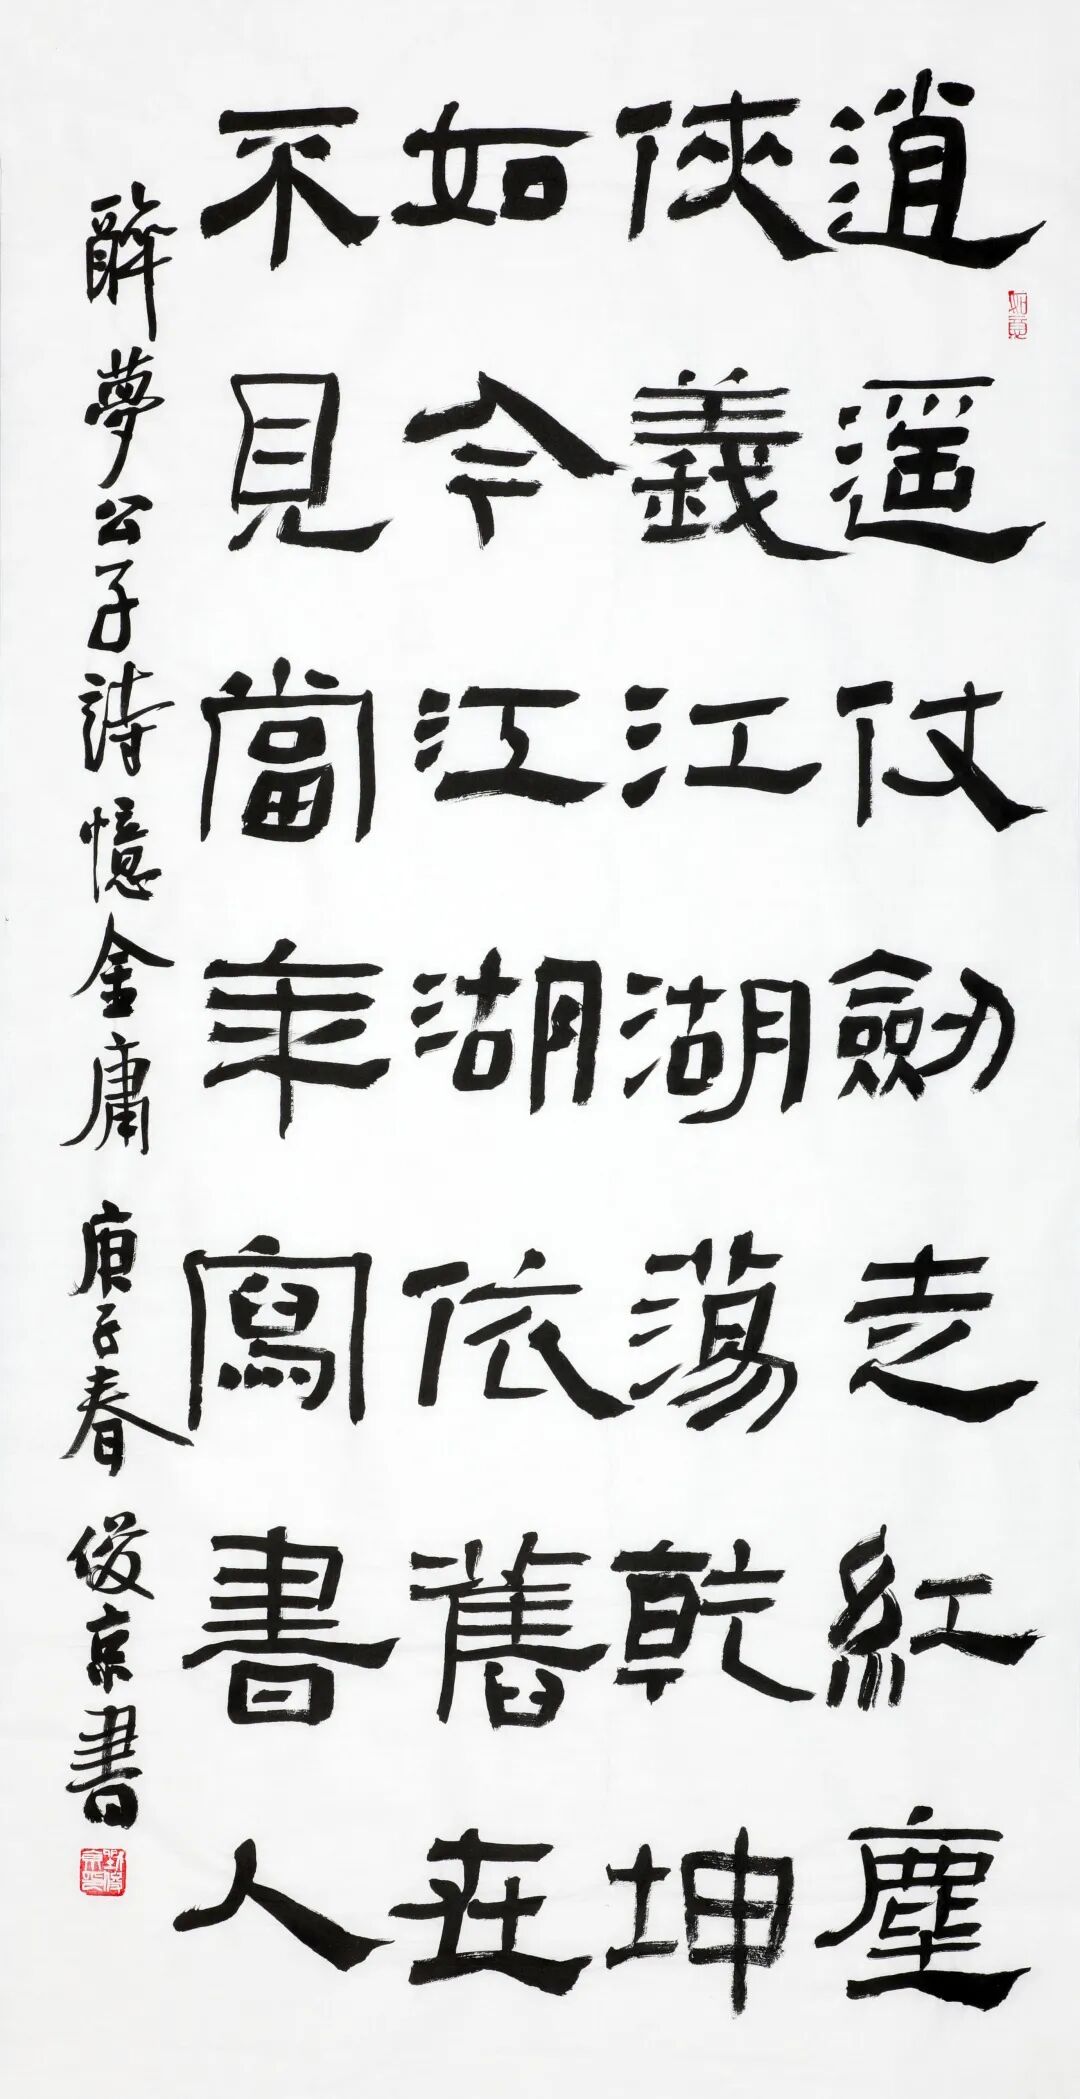 逍遥仗劍走紅塵
俠義江湖蕩乾坤
如今江湖依舊在
不見當年寫書人
觧夢公子詩憶金庸 庚子春 俊京書
如意
劉俊京印